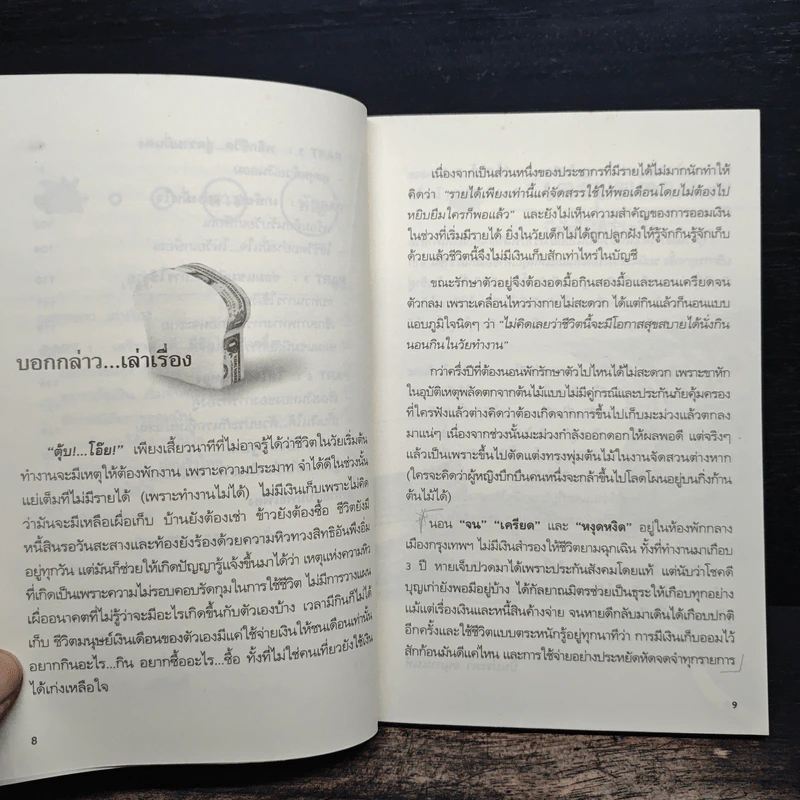 บอกกล่าว...เล่าเรื่อง
“ตุ้บ!...โอ๊ย!” เพียงเสี้ยวนาทีที่ไม่อาจรู้ได้ว่าชีวิตในวัยเริ่มต้น
ทำงานจะมีเหตุให้ต้องพักงาน เพราะความประมาท จำได้ดีในช่วงนั้น
แย่เต็มที่ไม่มีรายได้ (เพราะทำงานไม่ได้) ไม่มีเงินเก็บเพราะไม่คิด
ว่ามันจะมีเหลือเผื่อเก็บ บ้านยังต้องเช่า ข้าวยังต้องซื้อ ชีวิตยังมี
หนี้สินรอวันสะสางและท้องยังร้องด้วยความหิวทางสิทธิอันพึงอิ่ม
อยู่ทุกวัน แต่มันก็ช่วยให้เกิดปัญญารู้แจ้งขึ้นมาได้ว่า เหตุแห่งความหิว
ที่เกิดเป็นเพราะความไม่รอบคอบรัดกุมในการใช้ชีวิต ไม่มีการวางแผน
เผื่ออนาคตที่ไม่รู้ว่าจะมีอะไรเกิดขึ้นกับตัวเองบ้าง เวลามีกินก็ไม่ได้
เก็บ ชีวิตมนุษย์เงินเดือนของตัวเองมีแค่ใช้จ่ายเงินให้ชนเดือนเท่านั้น
อยากกินอะไร...กิน อยากซื้ออะไร...ซื้อ ทั้งที่ไม่ใช่คนเที่ยวยังใช้เงิน
ได้เก่งเหลือใจ
8
เนื่องจากเป็นส่วนหนึ่งของประชากรที่มีรายได้ไม่มากนักทำให้
คิดว่า “รายได้เพียงเท่านี้แค่จัดสรรใช้ให้พอเดือนโดยไม่ต้องไป
หยิบยืมใครก็พอแล้ว” และยังไม่เห็นความสำคัญของการออมเงิน
ในช่วงที่เริ่มมีรายได้ ยิ่งในวัยเด็กไม่ได้ถูกปลูกฝังให้รู้จักกินรู้จักเก็บ
ด้วยแล้วชีวิตนี้จึงไม่มีเงินเก็บสักเท่าไหร่ในบัญชี
ขณะรักษาตัวอยู่จึงต้องอดมื้อกินสองมื้อและนอนเครียดจน
ตัวกลม เพราะเคลื่อนไหวร่างกายไม่สะดวก ได้แต่กินแล้วก็นอนแบบ
แอบภูมิใจนิดๆ ว่า “ไม่คิดเลยว่าชีวิตนี้จะมีโอกาสสุขสบายได้นั่งกิน
นอนกินในวัยทำงาน”
กว่าครึ่งปีที่ต้องนอนพักรักษาตัวไปไหนได้ไม่สะดวก เพราะขาหัก
ในอุบัติเหตุพลัดตกจากต้นไม้แบบไม่มีคู่กรณีและประกันภัยคุ้มครอง
ที่ใครฟังแล้วต่างคิดว่าต้องเกิดจากการขึ้นไปเก็บมะม่วงแล้วตกลง
มาแน่ๆ เนื่องจากช่วงนั้นมะม่วงกำลังออกดอกให้ผลพอดี แต่จริงๆ
แล้วเป็นเพราะขึ้นไปตัดแต่งทรงพุ่มต้นไม้ในงานจัดสวนต่างหาก
(ใครจะคิดว่าผู้หญิงบึกบึนคนหนึ่งจะกล้าขึ้นไปโลดโผนอยู่บนกิ่งก้าน
ต้นไม้ได้)
นอน “จน” “เครียด” และ “หงุดหงิด” อยู่ในห้องพักกลาง
เมืองกรุงเทพฯ ไม่มีเงินสำรองให้ชีวิตยามฉุกเฉิน ทั้งที่ทำงานมาเกือบ
3 ปี หายเจ็บปวดมาได้เพราะประกันสังคมโดยแท้ แต่นับว่าโชคดี
บุญเก่ายังพอมีอยู่บ้าง ได้กัลยาณมิตรช่วยเป็นธุระให้เกือบทุกอย่าง
แม้แต่เรื่องเงินและหนี้สินค้างจ่าย จนหายดีกลับมาเดินได้เกือบปกติ
อีกครั้งและใช้ชีวิตแบบตระหนักรู้อยู่ทุกนาทีว่า การมีเงินเก็บออมไว้
สักก้อนมันดีแค่ไหน และการใช้จ่ายอย่างประหยัดหัดจดจำทุกรายการ
9